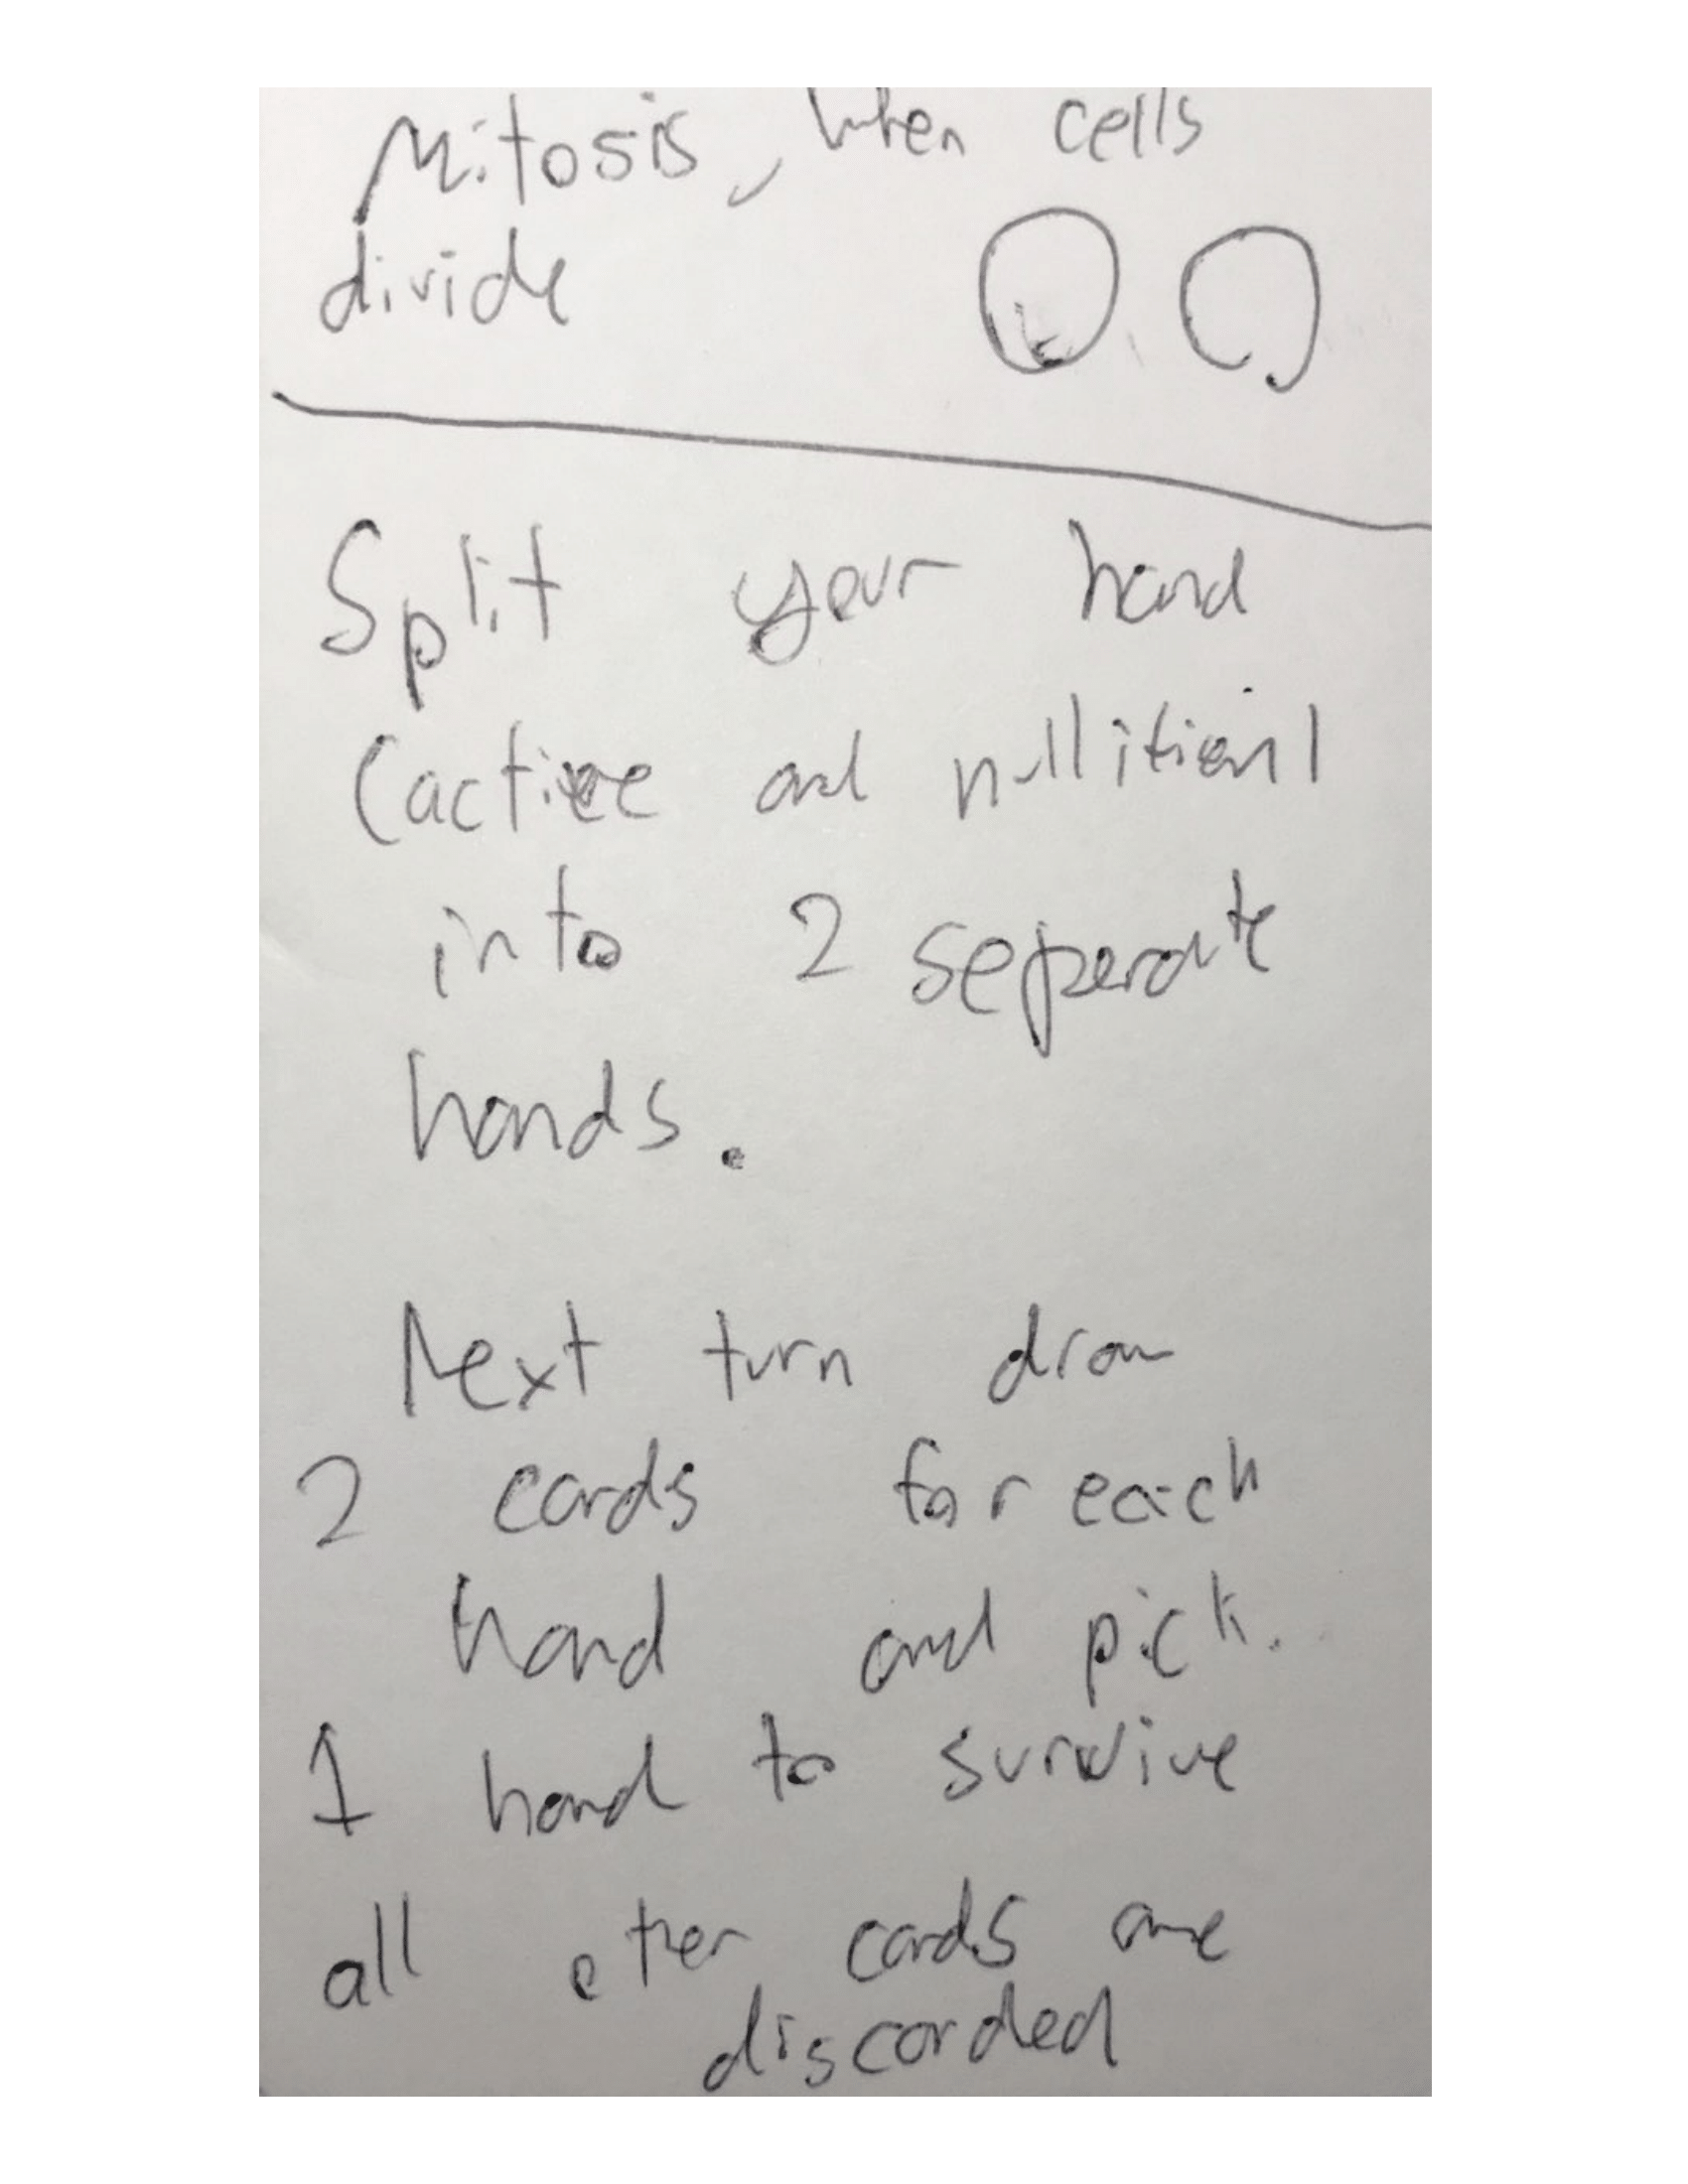 Mitosis, when cells
divide
Split your hand
(active and nullition)
into 2 seperate
hands.
Next turn draw
2 cards for each
hand and pick
1 hand to survive
all other cards are
discarded